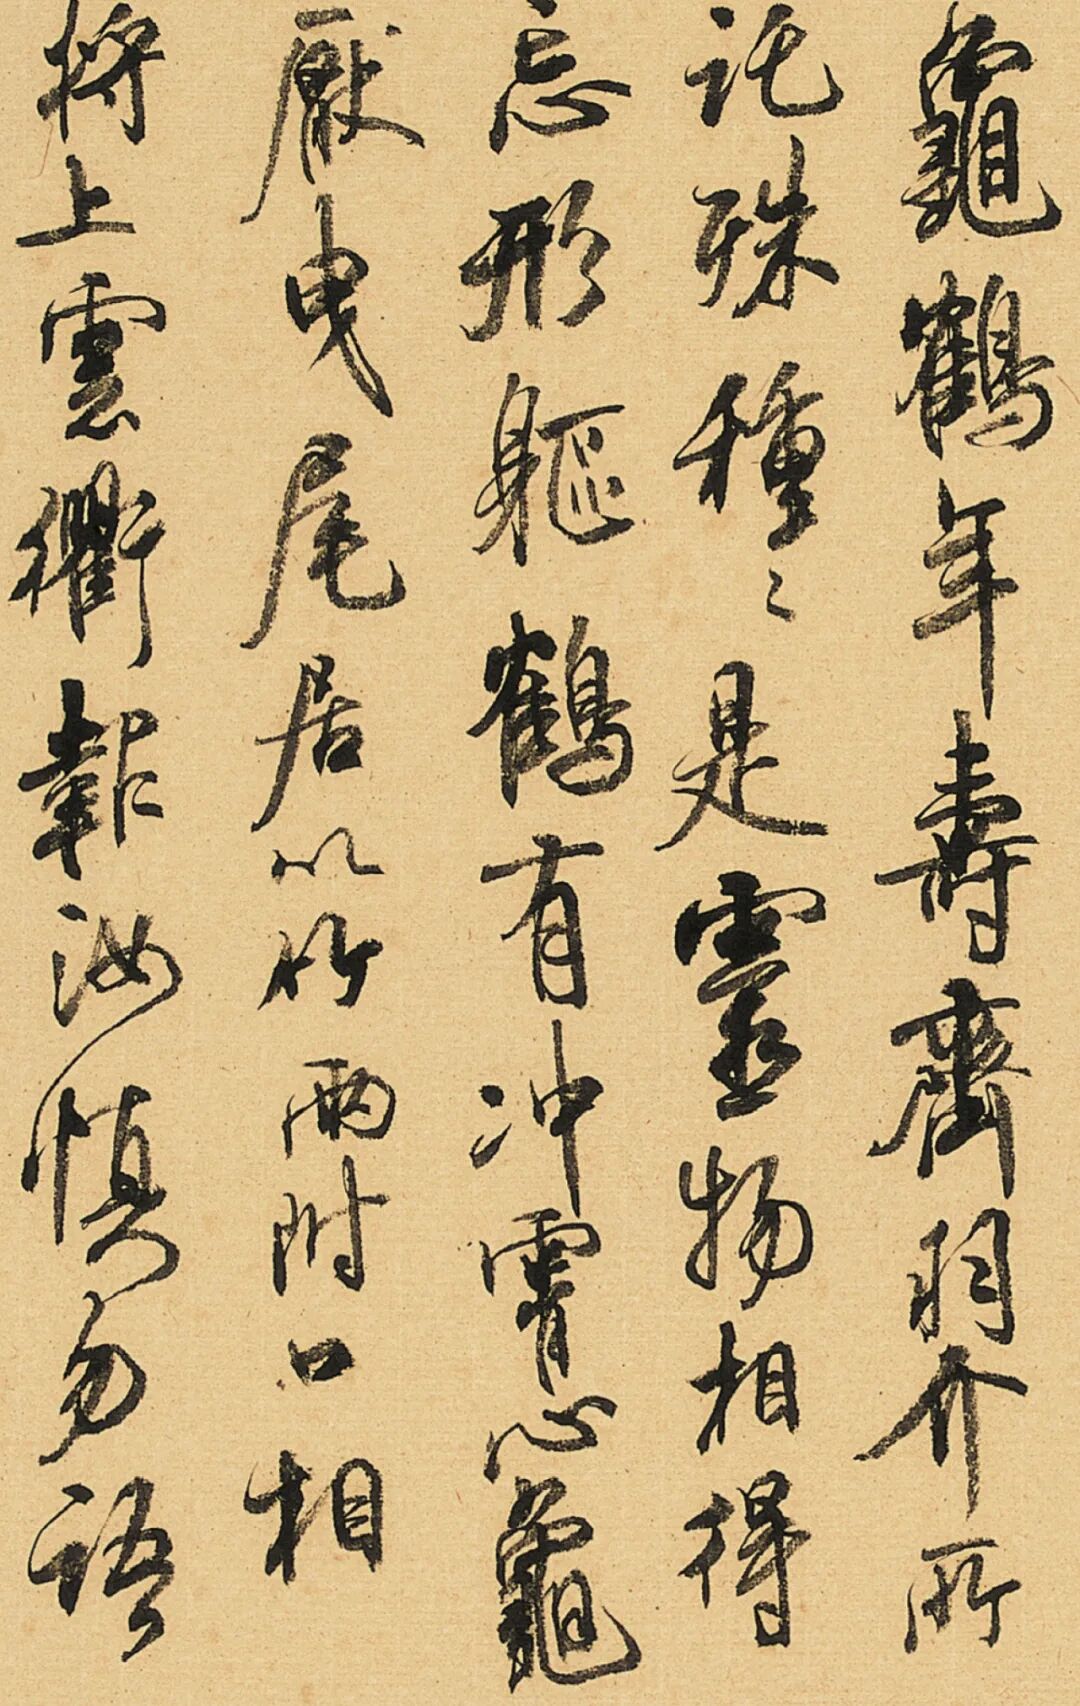 龜鶴年壽齊羽介所
託殊種〻是靈物相得
忘形軀鶴有冲霄心龜
厭曳尾居以竹兩附口相
將上雲衢報汝慎勿語